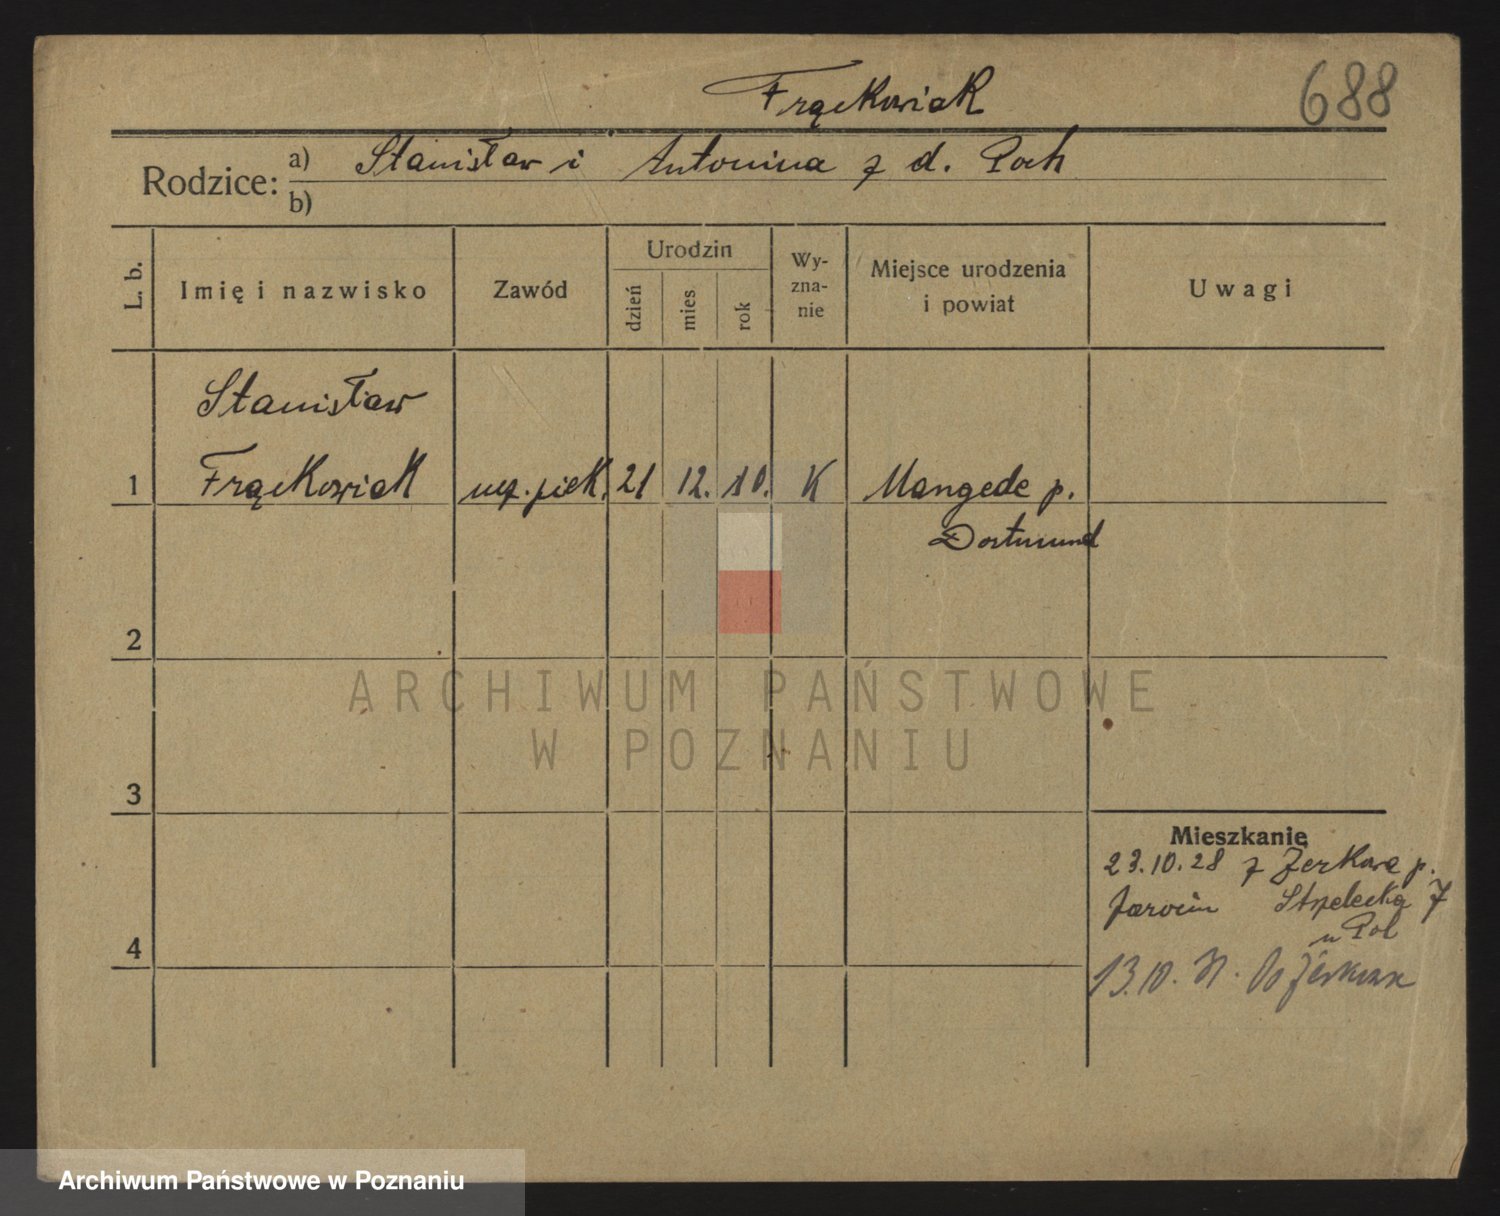 688
Frąckowiak
Rodzice: a) Stanisław i Antonina z d. Poch
b)
L. b. Imię i nazwisko Zawód Urodzin dzień mies rok Wy-zna-nie Miejsce urodzenia i powiat Uwagi
Stanisław
1 Frąckowiak ucz. piek. 21 12. 10. K Mangede p.
Dortmund
2
ARCHIWUM PAŃSTWOWE
W POZNANIU
3
Mieszkanie
23.10.28 z Żerkowa p.
4 Jarocin Strzelecka 7
u Pol
13.10. Żerkowa
Archiwum Państwowe w Poznaniu